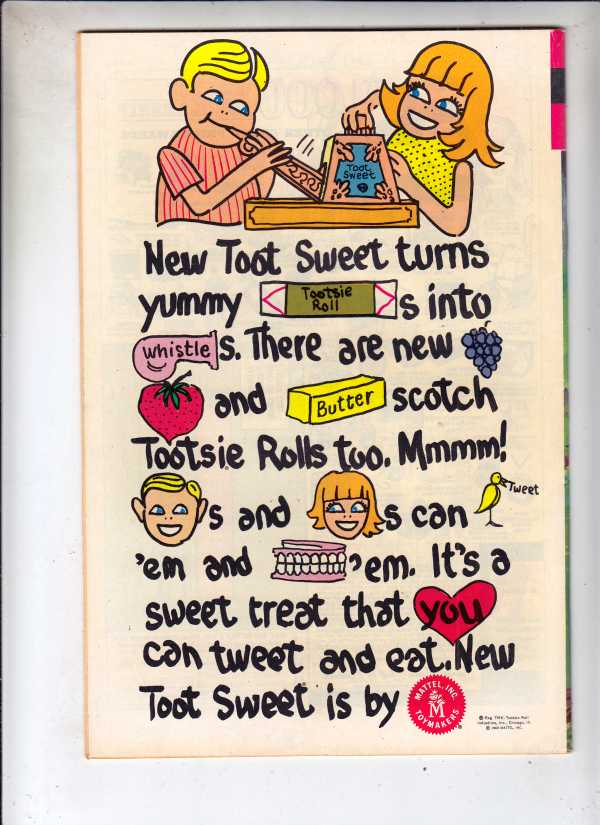 Toot
Sweet
New Toot Sweet turns
yummy Tootsie Roll s into
Whistle s. There are new
and Butter scotch
Tootsie Rolls too. Mmmm!
s and s can Tweet
'em and 'em. It's a
sweet treat that you
can tweet and eat. New
Toot Sweet is by MATTEL, INC. M TOYMAKERS
® Reg TMK, Tootsie Roll
Industries, Inc., Chicago, Ill.
© 1968 MATTEL, INC.